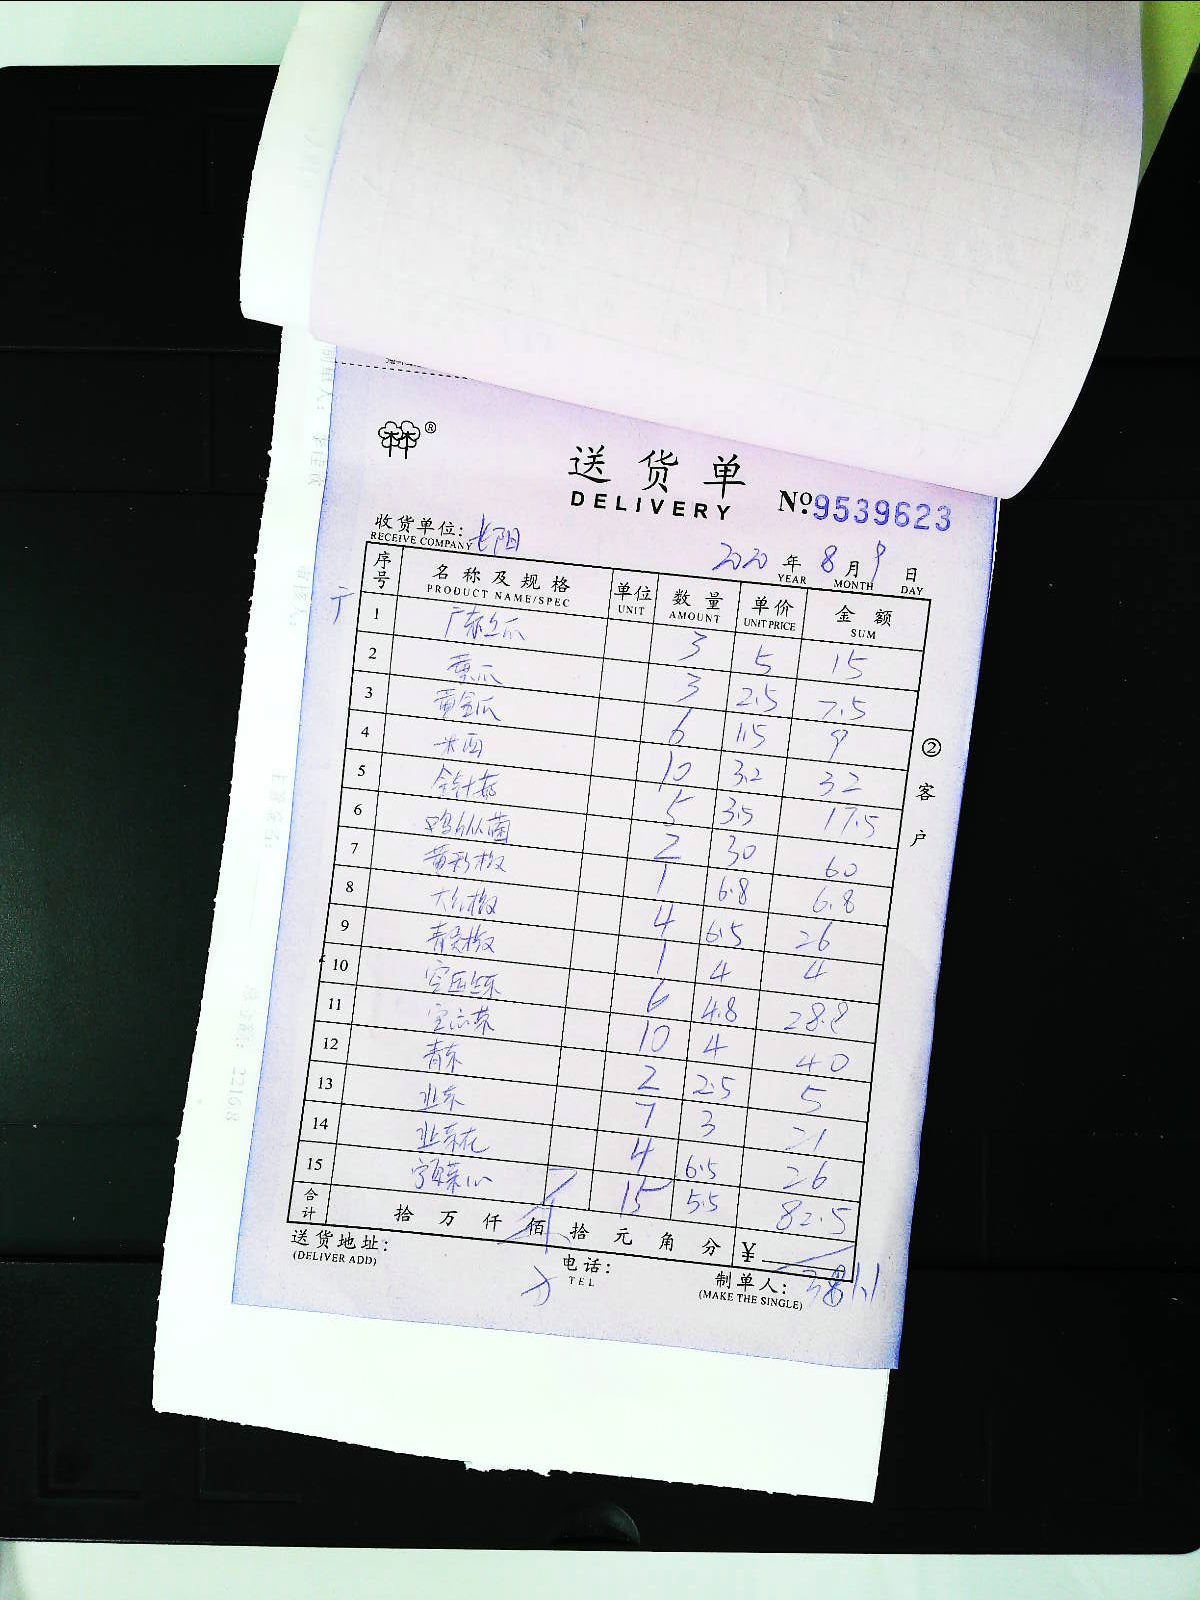 ®
送货单
DELIVERY
No.9539623
收货单位:长阳
RECEIVE COMPANY
2020年8月9日
YEAR MONTH DAY
序号 名称及规格 单位 数量 单价 金额
PRODUCT NAME/SPEC UNIT AMOUNT UNIT PRICE SUM
1 广东丝瓜 3 5 15
2 黄瓜 3 2.5 7.5
3 黄金瓜 6 1.5 9
4 10 3.2 32
5 金针菇 5 3.5 17.5
6 鸡枞菌 2 30 60
7 黄彩椒 1 6.8 6.8
8 大红椒 4 6.5 26
9 青尖椒 1 4 4
10 6 4.8 28.8
11 空心菜 10 4 40
12 青菜 2 2.5 5
13 韭菜 7 3 21
14 韭菜花 4 6.5 26
15 菜心 15 5.5 82.5
合计 拾 万 仟 佰 拾 元 角 分 ¥
381.1
送货地址:
(DELIVER ADD)
电话:
TEL
制单人:
(MAKE THE SINGLE)
②客户